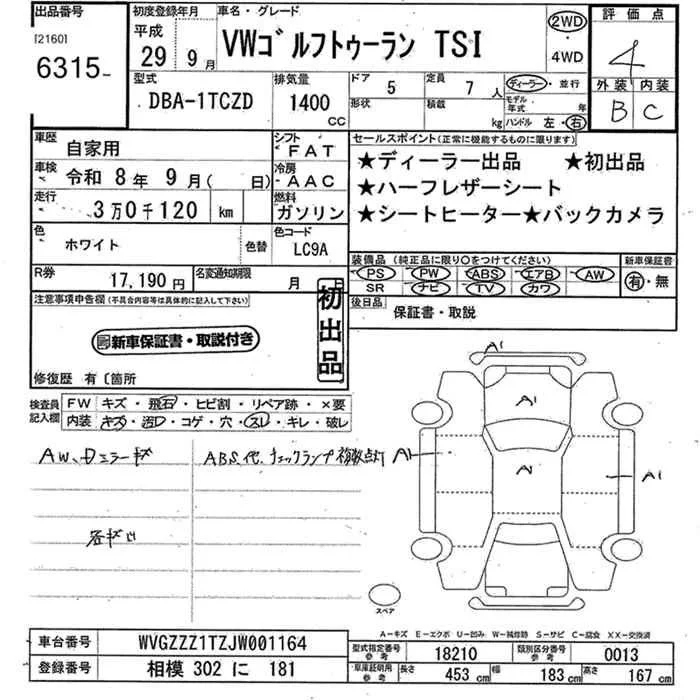 出品番号
[2160]
6315
初度登録年月
平成
29 9月
車名・グレード
VWゴルフトゥーラン TSI
2WD
・
4WD
評価点
4
外装 内装
B C
型式
DBA-1TCZD
排気量
1400
CC
ドア 5
定員 7 人
形状
積載 kg
ディーラー・並行
モデル年式 年
ハンドル 左・右
車歴
自家用
シフト
FAT
車検 令和 8年 9月( 日)
冷房
AAC
走行
3万0千120 km
燃料
ガソリン
色
ホワイト
色替
色コード
LC9A
R券
17,190円
名変通知期限
月 日
セールスポイント(正常に機能するものに限ります)
★ディーラー出品 ★初出品
★ハーフレザーシート
★シートヒーター★バックカメラ
装備品(純正品に限り○をつけてください)
PS PW ABS エアB AW
SR ナビ TV カワ
新車保証書
有・無
後日品
保証書・取説
注意事項申告欄(不具合内容等は具体的に記入して下さい)
新車保証書・取説付き
初出品
修復歴 有〔箇所
検査員
記入欄
FW キズ・飛石・ヒビ割・リペア跡・×要
内装 キズ・汚レ・コゲ・穴・スレ・キレ・破レ
AW、ドアミラーキズ
ABS、他、チェックランプ複数点灯
A1
A1
A1
A
A1
スペア
A-キズ E-エクボ U-凹み W-補修跡 S-サビ C-腐食 XX-交換済
車台番号
WVGZZZ1TZJW001164
登録番号
相模 302 に 181
型式指定番号
参考
18210
類別区分番号
参考
0013
車庫証明用
参考
長さ 453 cm
幅 183 cm
高さ 167 cm